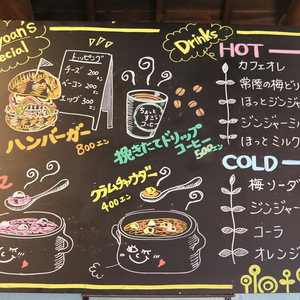 yoan's
Special
トッピング
チーズ 200
ベーコン 200
エッグ 300
ハンバーガー
800エン
ちょっと
すごい
コーヒー
挽きたてドリップ
コーヒー
500エン
クラムチャウダー
400エン
Drinks
HOT
カフェオレ
常陸の梅ど
ほっとジン
ジンジャーミ
ほっとミルク
COLD
梅ソーダ
ジンジャー
コーラ
オレン